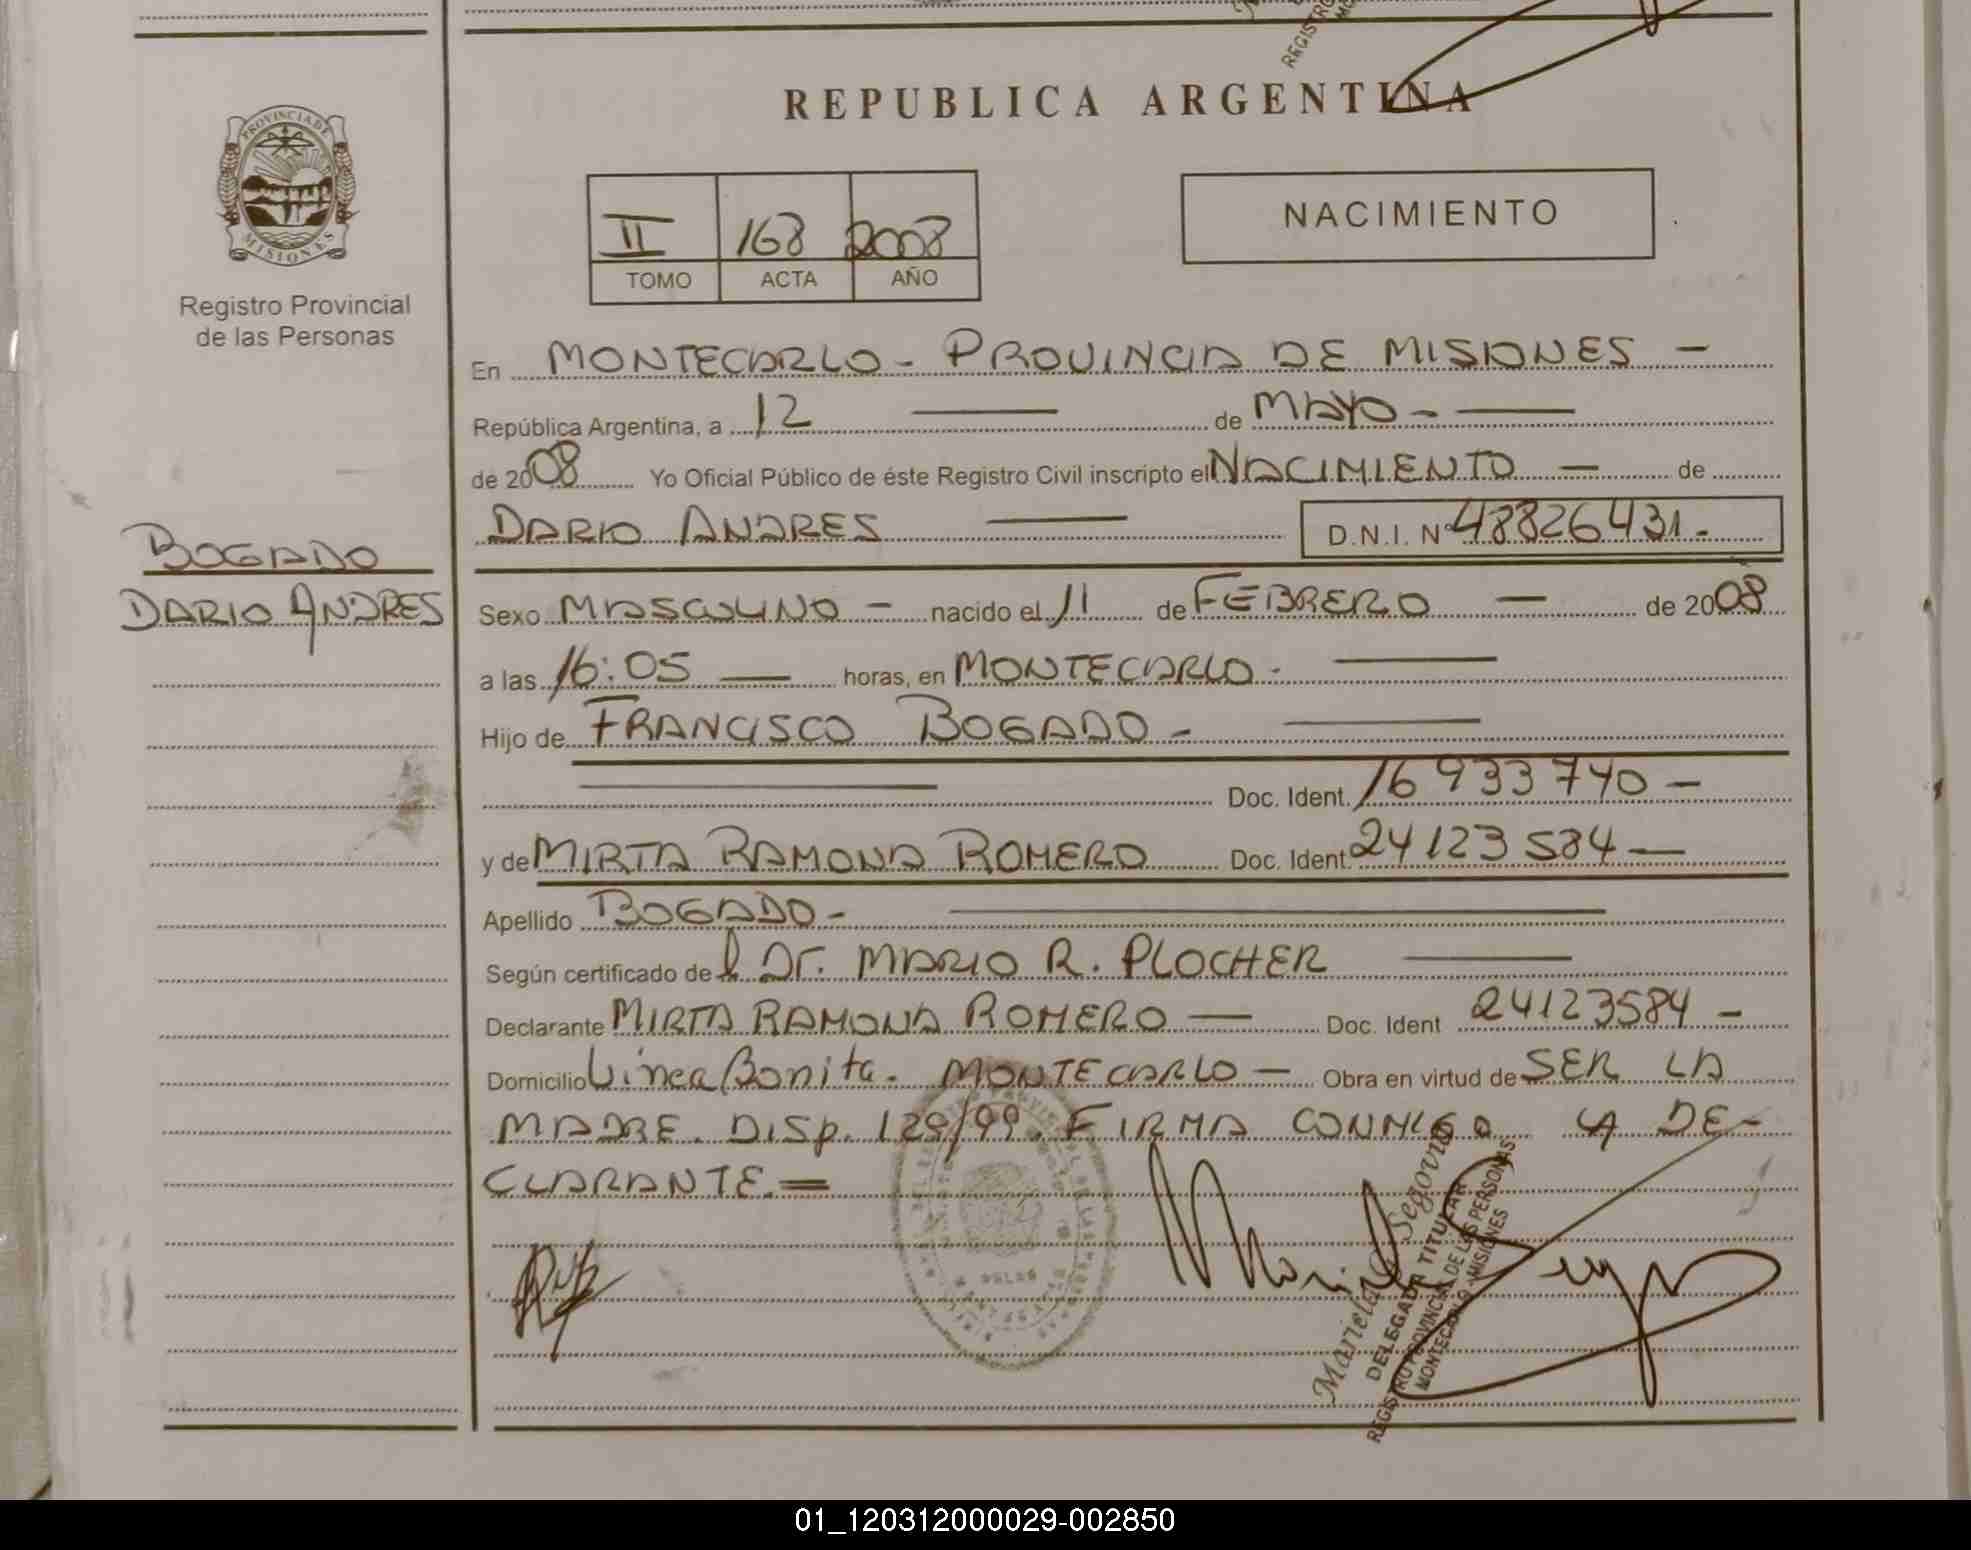 REGISTRO
REPUBLICA ARGENTINA
PROVINCIA DE
MISIONES
Registro Provincial
de las Personas
II 168 2008
TOMO ACTA AÑO
NACIMIENTO
En MONTECARLO - PROVINCIA DE MISIONES -
República Argentina, a 12 de MAYO -
de 2008 Yo Oficial Público de éste Registro Civil inscripto el NACIMIENTO - de
DARIO ANDRES D.N.I. Nº 48826431.
BOGADO
DARIO ANDRES
Sexo MASCULINO - nacido el 11 de FEBRERO - de 2008
a las 16:05 horas, en MONTECARLO -
Hijo de FRANCISCO BOGADO -
Doc. Ident. 16 933 740 -
y de MIRTA RAMONA ROMERO Doc. Ident. 24 123 584 -
Apellido BOGADO -
Según certificado del Dr. MARIO R. PLOCHER
Declarante MIRTA RAMONA ROMERO - Doc. Ident 24123584 -
Domicilio Línea Bonita. MONTECARLO - Obra en virtud de SER LA
MADRE. DISP. 129/99. FIRMA CONMIGO LA DE-
CLARANTE.=
Mariela Segovia
DELEGADA TITULAR
REGISTRO PROVINCIAL DE LAS PERSONAS
MONTECARLO - MISIONES
01_120312000029-002850